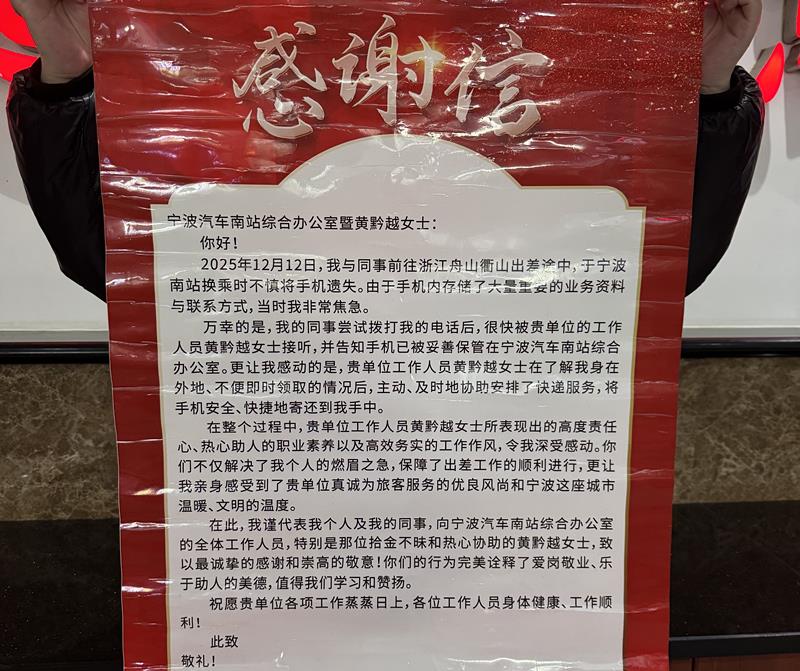 感谢信
宁波汽车南站综合办公室暨黄黔越女士：
你好！
2025年12月12日，我与同事前往浙江舟山衢山出差途中，于宁波
南站换乘时不慎将手机遗失。由于手机内存储了大量重要的业务资料
与联系方式，当时我非常焦急。
万幸的是，我的同事尝试拨打我的电话后，很快被贵单位的工作
人员黄黔越女士接听，并告知手机已被妥善保管在宁波汽车南站综合
办公室。更让我感动的是，贵单位工作人员黄黔越女士在了解我身在
外地、不便即时领取的情况后，主动、及时地协助安排了快递服务，将
手机安全、快捷地寄还到我手中。
在整个过程中，贵单位工作人员黄黔越女士所表现出的高度责任
心、热心助人的职业素养以及高效务实的工作作风，令我深受感动。你
们不仅解决了我个人的燃眉之急，保障了出差工作的顺利进行，更让
我亲身感受到了贵单位真诚为旅客服务的优良风尚和宁波这座城市
温暖、文明的温度。
在此，我谨代表我个人及我的同事，向宁波汽车南站综合办公室
的全体工作人员，特别是那位拾金不昧和热心协助的黄黔越女士，致
以最诚挚的感谢和崇高的敬意！你们的行为完美诠释了爱岗敬业、乐
于助人的美德，值得我们学习和赞扬。
祝愿贵单位各项工作蒸蒸日上，各位工作人员身体健康、工作顺
利！
此致
敬礼！